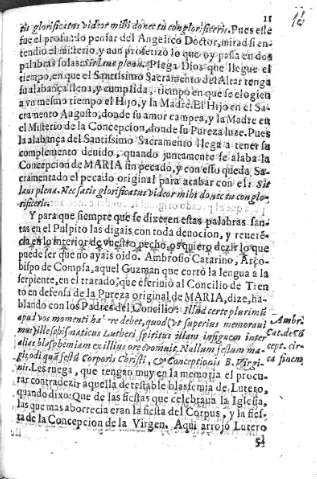 11
12
tis glorificatus videor mihi donec tu conglorificeris. Pues este
fue el profundo pensar del Angelico Doctor, mirad si en-
tendio el misterio, y aun profetizò lo que oy passa en dos
palabras solas: sit laus plena. Plega Dios que llegue el
tiempo, en que el Santissimo Sacramento del Altar tenga
su alabança llena, y cumplida, tiempo en que se elogien
a vn mesmo tiempo el Hijo, y la Madre. El Hijo en el Sa-
cramento Augusto, donde su amor campea, y la Madre en
el Misterio de la Concepcion, donde su Pureza luze. Pues
la alabança del Santissimo Sacramento llega a tener su
complemento deuido, quando juntamente se alaba la
Concepcion de MARIA sin pecado, y con esso queda Sa-
cramentado el pecado original para acabar con el: Sit
laus plena. Nec satis glorificatus videor mihi donec tu conglo-
rificeris.
Y para que siempre que se dixeren estas palabras san-
tas en el Pulpito las digais con toda deuocion, y reueren-
cia en lo interior de vuestro pecho, os quiero dezir lo que
puede ser que no ayais oido. Ambrosio Catarino, Arço-
bispo de Compsa, aquel Guzman que cortò la lengua a la
serpiente, en el tratado, que escriuiò al Concilio de Tren
to en defensa de la Pureza original de MARIA, dize, ha-
blando con los Padres del Concilio: Illud certe plurimũ
apud vos momenti habere debet, quod & superius memoraui
mus, ille schismaticus Lutheri spiritus illam insignem inter
alias blasphemiam ex illius ore euomuit. Nullum festum ma-
gis odi quã festũ Corporis Christi, & Conceptionis B. Virgi-
nis. Les ruega, que tengan muy en la memoria el procu-
rar contradezir aquella detestable blasfemia de Lutero,
quando dixo: Que de las fiestas que celebraua la Iglesia,
las que mas aborrecia eran la fiesta del Corpus, y la fies-
ta de la Concepcion de la Virgen. Aqui arrojò Lutero
Ambr.
Cat. de Cõ
cept. cir-
ca finem